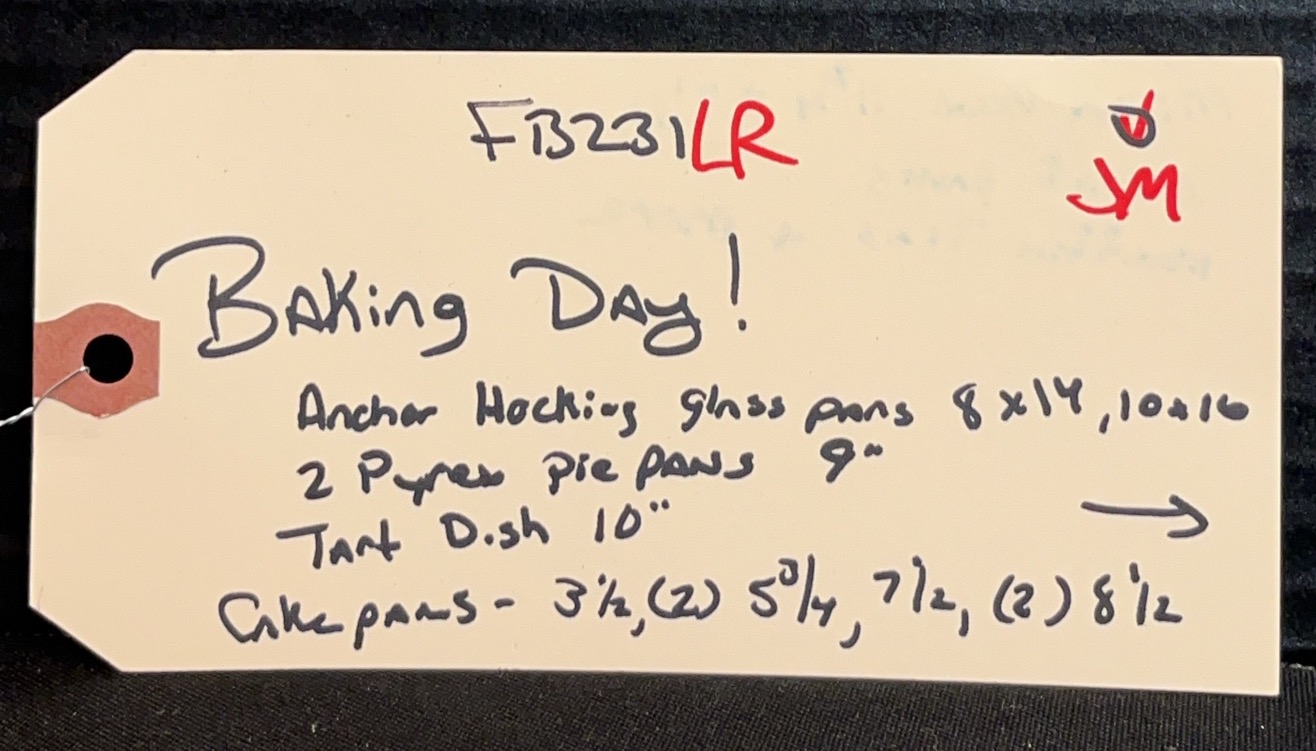 FB231LR
JM
Baking Day!
Anchor Hocking glass pans 8x14, 10x16
2 Pyrex pie pans 9"
Tart Dish 10"
→
Cake pans - 3 1/2, (2) 5 3/4, 7 1/2, (2) 8 1/2